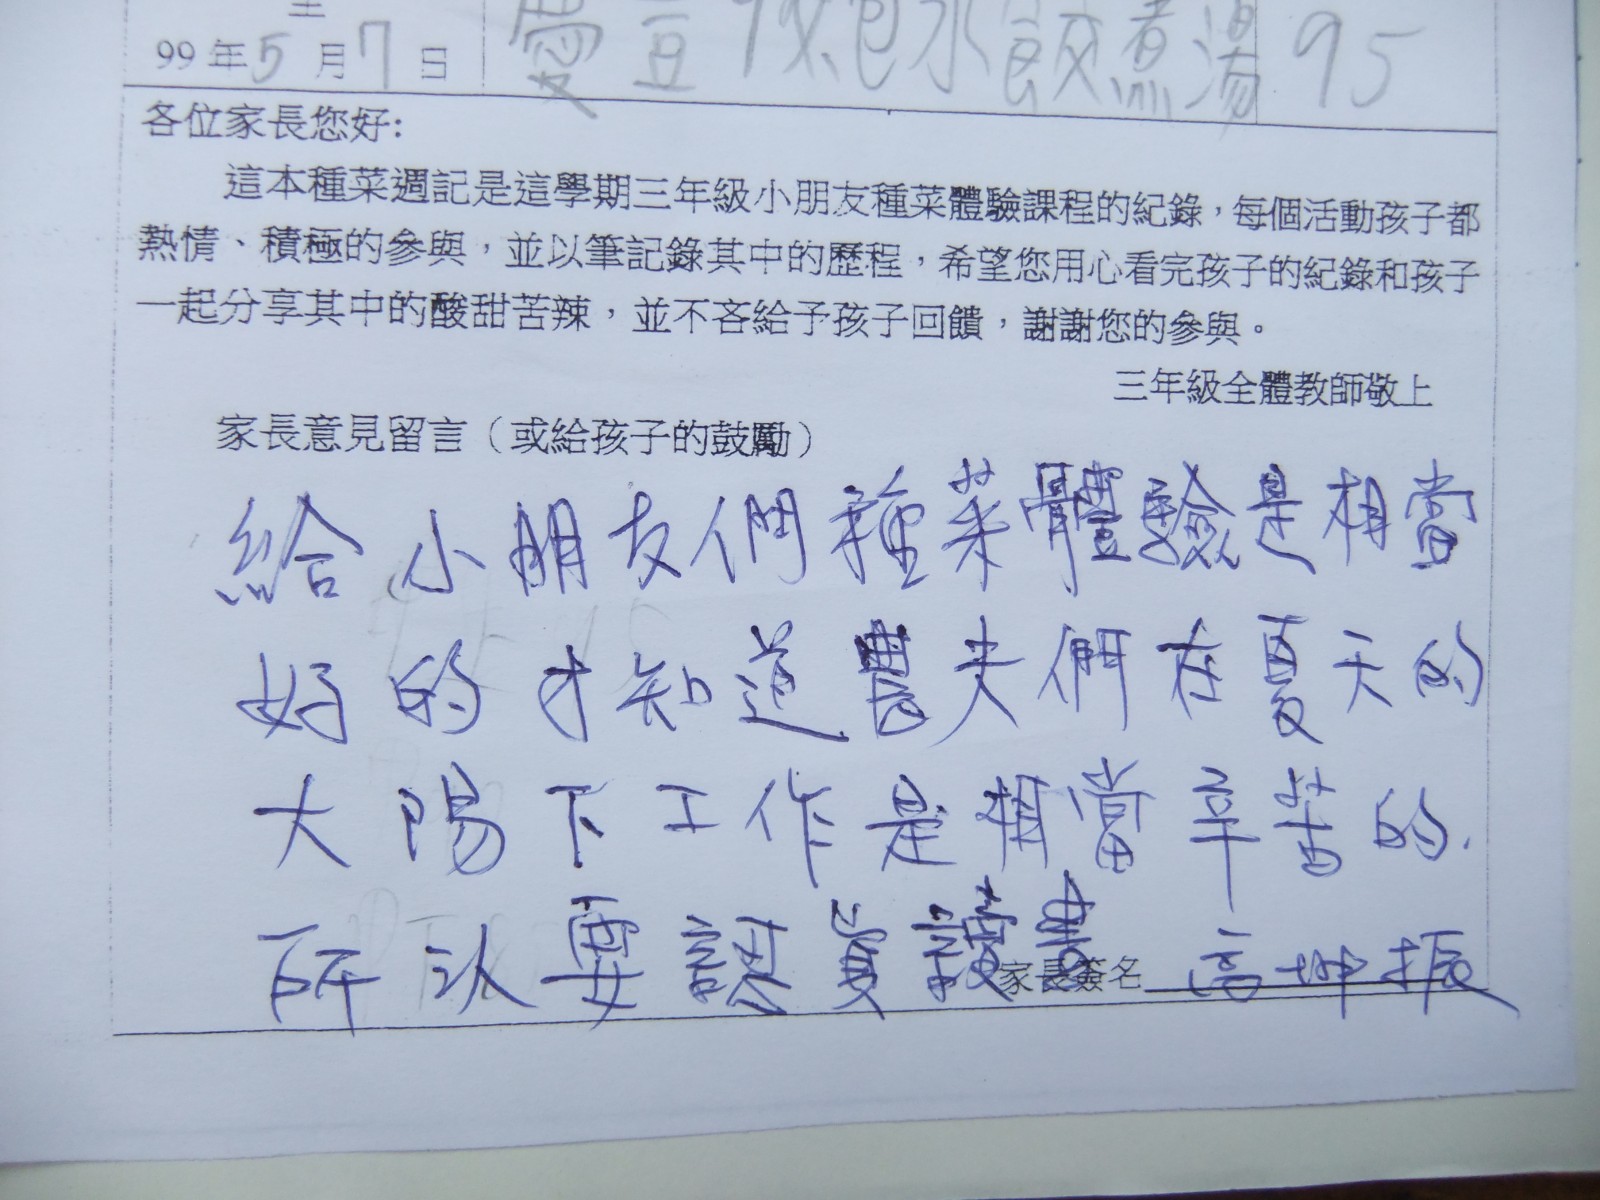 至
99年5月7日
豆 水餃煮湯 95
各位家長您好:
這本種菜週記是這學期三年級小朋友種菜體驗課程的紀錄，每個活動孩子都
熱情、積極的參與，並以筆記錄其中的歷程，希望您用心看完孩子的紀錄和孩子
一起分享其中的酸甜苦辣，並不吝給予孩子回饋，謝謝您的參與。
三年級全體教師敬上
家長意見留言（或給孩子的鼓勵）
給小朋友們種菜體驗是相當
好的才知道農夫們在夏天的
大陽下工作是相當辛苦的.
所以要認真讀書
家長簽名 高坤振